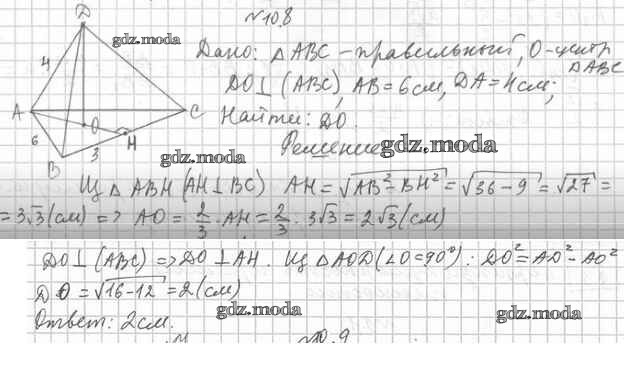 №10.8
D
gdz.moda
Дано: △ABC – правильный, O-центр
△ABC
4
DO⊥(ABC), AB = 6см, DA = 4см;
A
O
C
Найти: DO.
H
6
B
3
gdz.moda
Решение
gdz.moda
gdz.moda
Из △ABH (AH⊥BC) AH = √(AB²-BH²) = √(36-9) = √27 =
= 3√3 (см) => AO = 2/3 · AH = 2/3 · 3√3 = 2√3 (см)
DO⊥(ABC) => DO⊥AH. Из △AOD (∠O=90°): DO² = AD² - AO²
DO = √(16-12) = 2 (см)
Ответ: 2см.
gdz.moda
gdz.moda